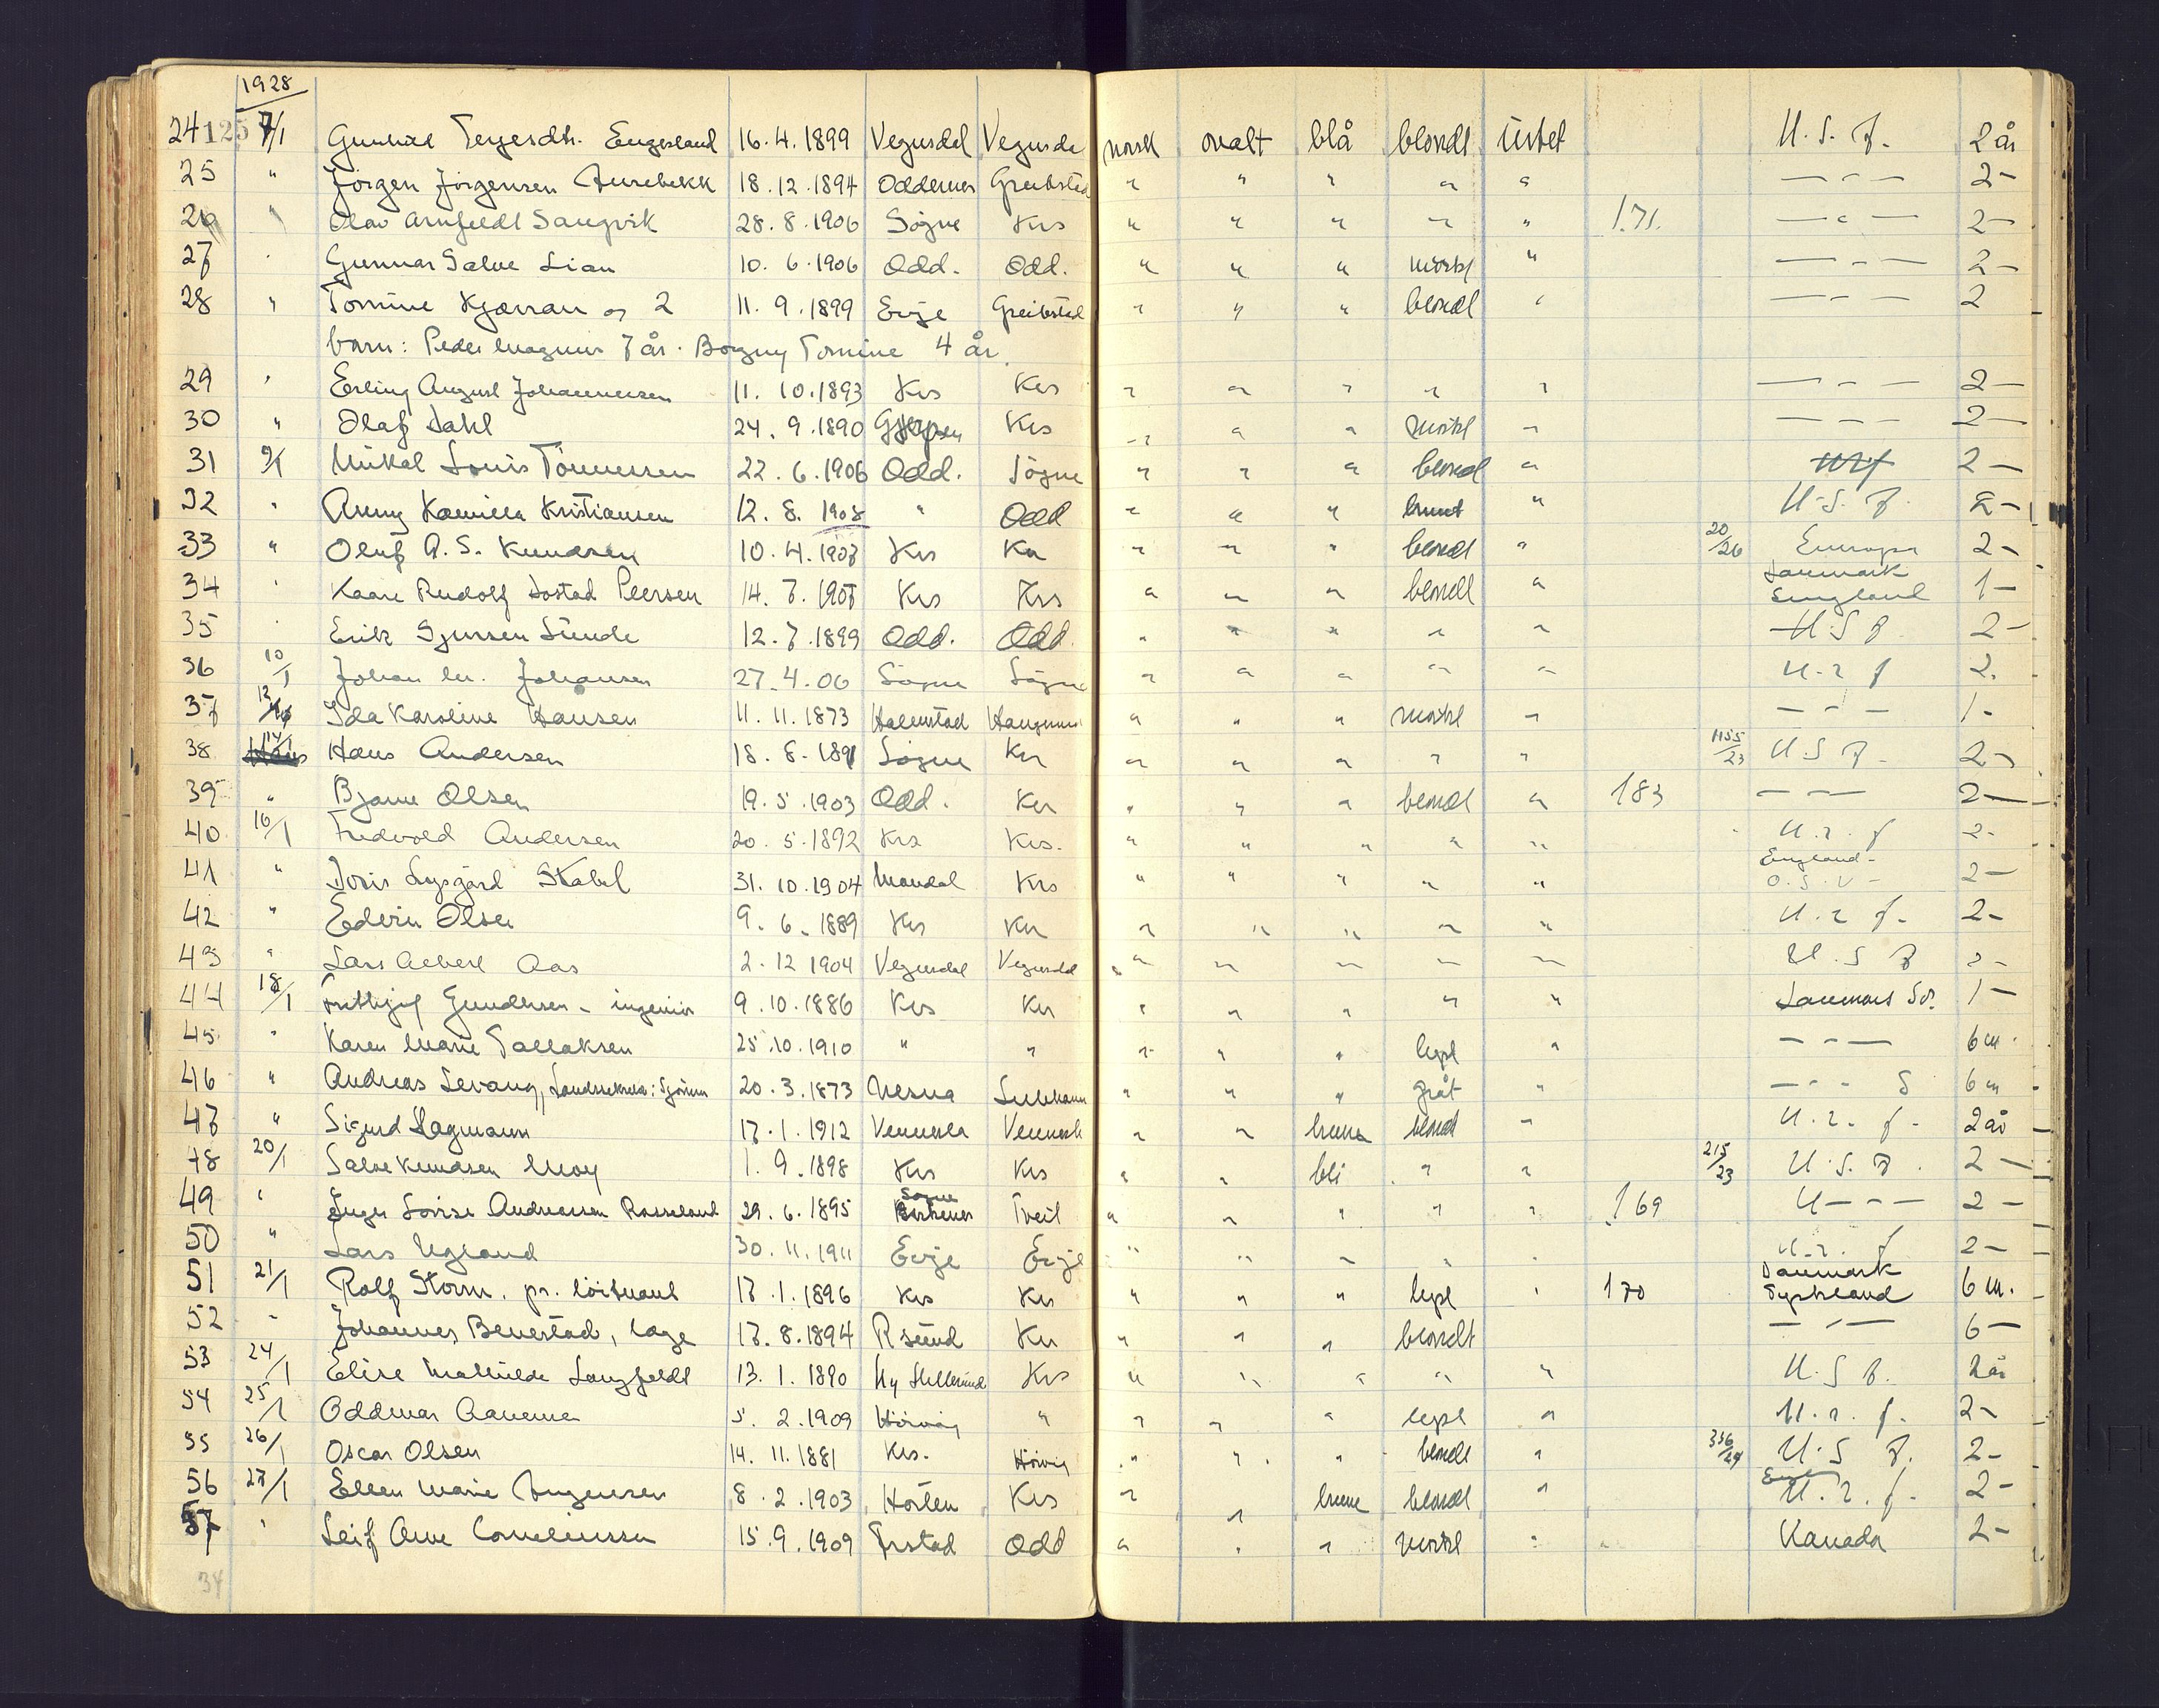 1928
24 125 7/1 Gunhild Terjesdtr. Engesland 16.4.1899 Vegusdal Vegusda norsk ovalt blå blondt intet U.S.F. 2 år
25 " Jörgen Jörgensen Aurebekk 18.12.1894 Oddernes Greibstad " " " " " — " — 2 -
26 " Olav Arnfeldt Sangvik 28.8.1906 Sögne Krs " " " " " 171. — " — 2 -
27 " Gunnar Salve Lian 10.6.1906 Odd. Odd. " " " mörkt " — " — 2 -
28 " Tomine Kjærran og 2 11.9.1899 Evje Greibstad " " " blondt " — " — 2
barn: Peder Magnus 7 år. Borgny Tomine 4 år.
29 " Erling August Johannessen 11.10.1893 Krs Krs " " " " " — " — 2 —
30 " Olaf Dahl 24.9.1890 Krs " " " mörkt " — — — 2 —
31 9/1 Mikal Louis Tönnessen 22.6.1906 Odd. Sögne " " " blondt " 2 —
32 " Anny Kamilla Kristiansen 12.8.1908 " Odd " " " brunt " U.S.F. 2 -
33 " Oluf A. S. Knudsen 10.4.1907 Krs Kr " " " blondt " 20/26 Europa 2 -
34 " Kaare Rudolf Peersen 14.7. Krs Krs " " " blondt " Danmark England 1 -
35 " Erik Sünde 12.7.1899 Odd. Odd. " " " " " U.S.F. 2 -
36 10/1 Johan M. Johansen 27.4.06 Sögne Sögne " " " " " U.S.F. 2.
37 Ida Karoline Hansen 11.11.1873 Halmstad " " " mörkt " — " — 1 -
38 14/1 Hans Andersen 18.8.1891 Sögne Kr " " " " " 1155/23 U.S.F. 2 -
39 " Bjarne Olsen 19.5.1903 Odd. Kr " " " blondt " 183 — — — 2 —
40 16/1 Andersen 20.5.1892 Krs Krs. " " " " " U.S.F. 2 -
41 " Doris Lysgård Stabel 31.10.1904 Mandal Krs " " " " " England - O.S.V - 2 —
42 " Edvin Olsen 9.6.1889 Krs Kr " " " " " U.S.F. 2 -
43 " Lars Aas 2.12 1904 Vegusdal Vegusdal " " " " " U.S.F. 2 -
44 18/1 Fritthjof Gundersen - ingeniör 9.10.1886 Krs Kr " " " " " Danmark Sv. 1 -
45 " Karen Marie Tallaksen 25.10.1910 " " " " " lyst " — " — 6 m.
46 " Andreas Sevang, 20.3.1873 Nesna " " " gråt " — " - S 6 m
47 " Sigurd Hagmann 17.1.1912 Vennesla Vennesla " " brune blondt " U.S.F. 2 år
48 20/1 Salve Knudsen Moy 1.9.1898 Krs Krs " " blå " " 215/23 U.S.F. 2 —
49 " Inger Lovise Andreassen Rosseland 29.6.1895 Sögne Tveit " " " " " 169 U — " — 2 -
50 " Lars Ugland 30.11.1911 Evje Evje " " " " " U.S.F. 2 -
51 21/1 Rolf Storm. pr. löitnant 17.1.1896 Krs Kr " " " lyst " 170 Danmark Tyskland 6 m.
52 " Johannes Benestad, læge 17.8.1894 Rsünd Kr " " " blondt — " — 6 —
53 24/1 Elise Mathilde Langfeldt 13.1.1890 Ny Hellesund Krs " " " " " U.S.F. 2 år
54 25/1 Oddmar Aanensen 5.2.1909 Hövåg " " " " lyst " U.S.F. 2 -
55 26/1 Oscar Olsen 14.11.1881 Krs. Hövåg " " " blondt " 336/24 U.S.F. 2 -
56 27/1 Ellen Marie 8.2.1903 Horten Krs " " brune blondt " U.S.F. 2 -
57 " Leif Arne Corneliussen 15.9.1909 Odd " " " mörkt " Kanada 2 -
34